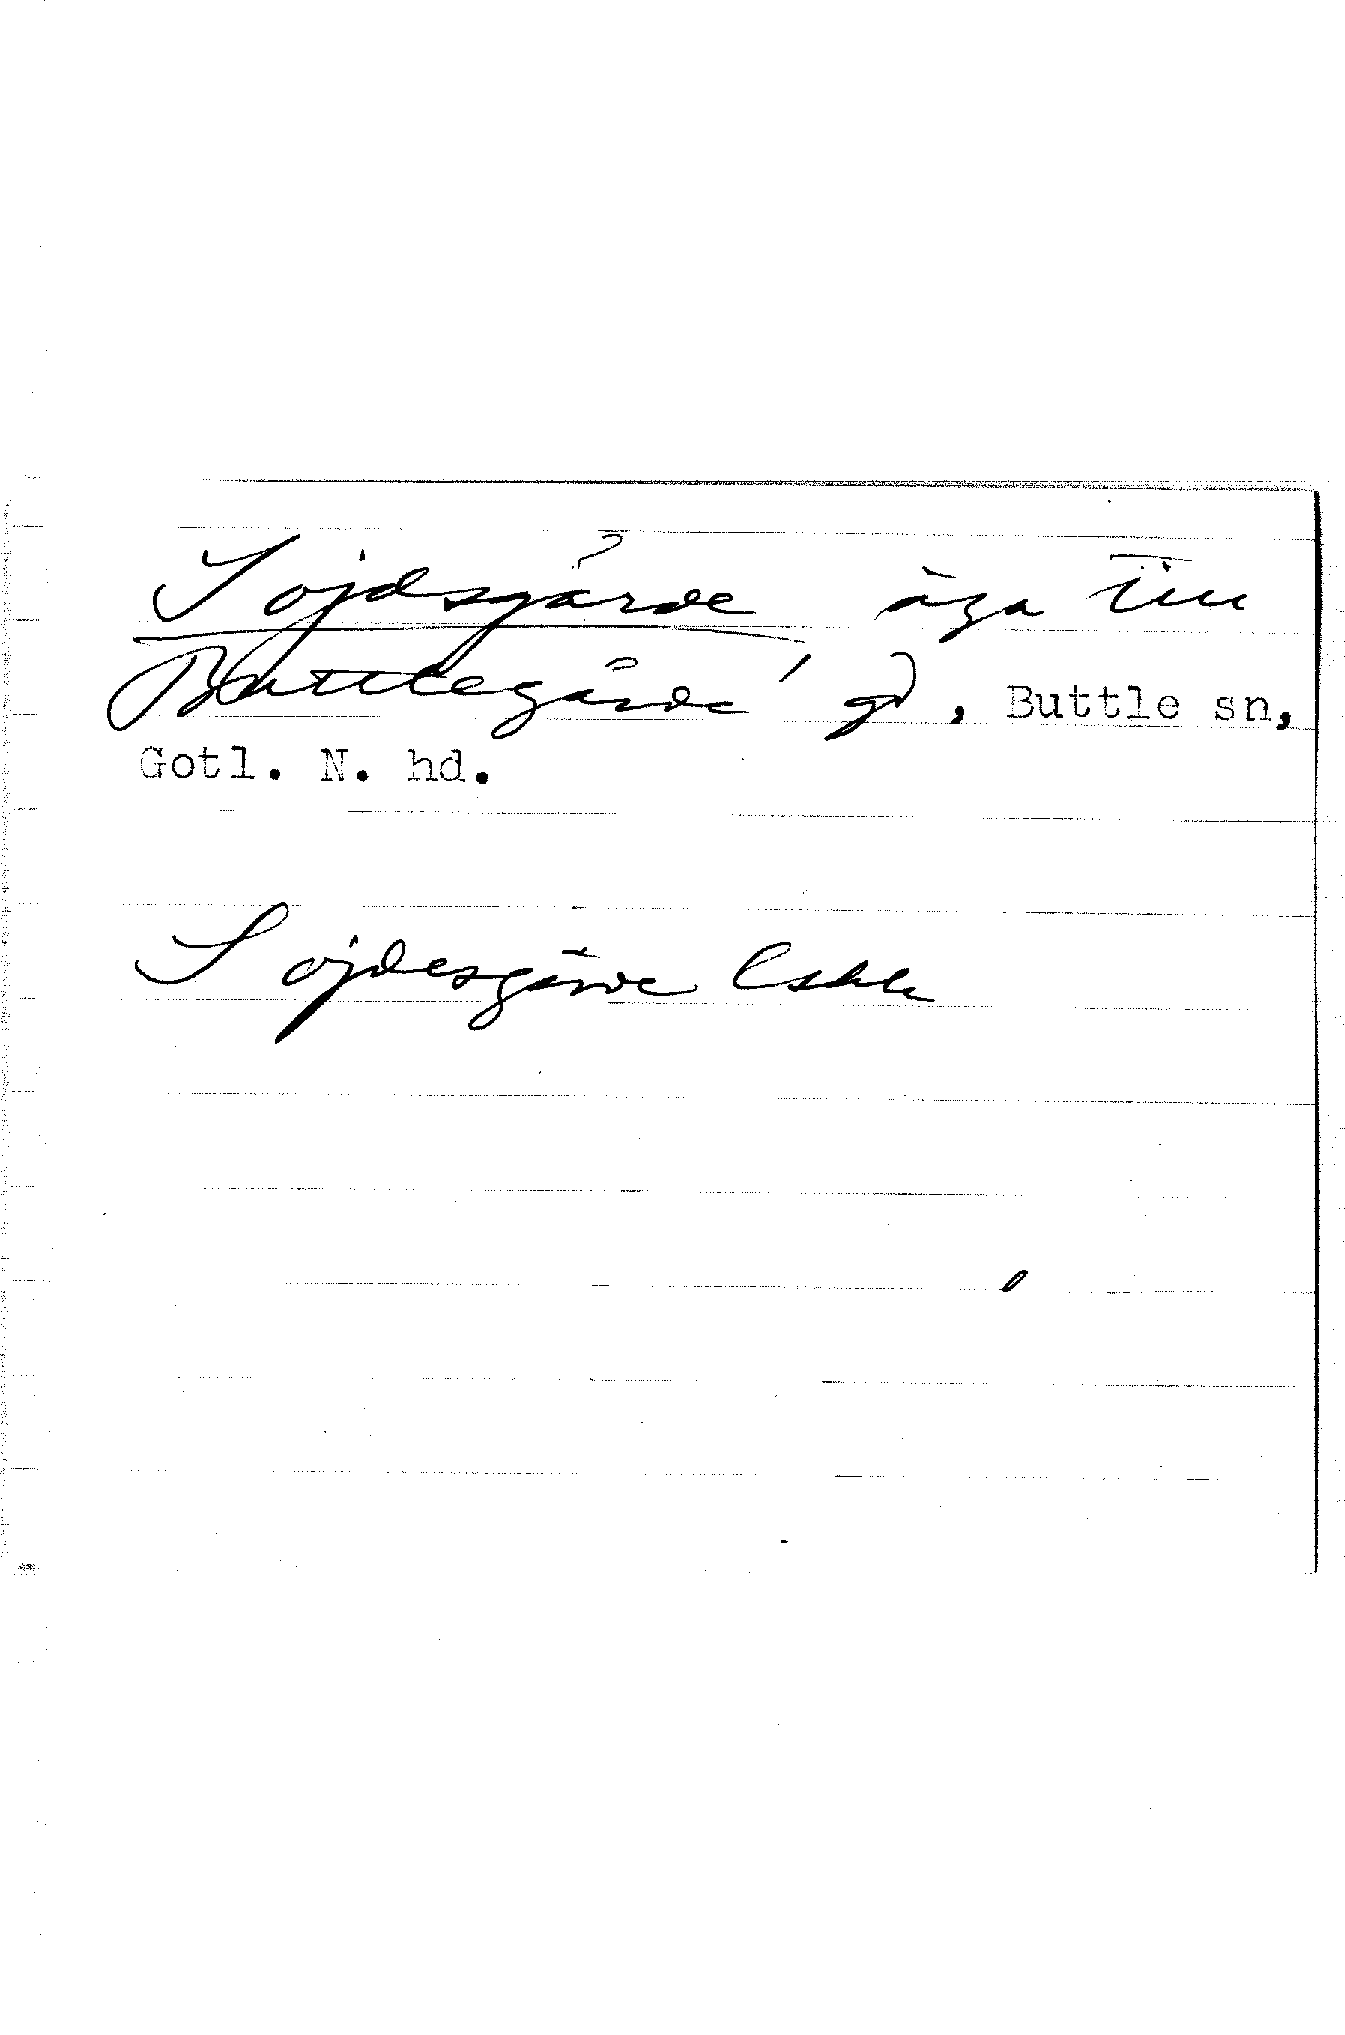 Sojdsgärde äga till
Buttlegårda gd, Buttle sn,
Gotl. N. hd.
Sojdesgärde